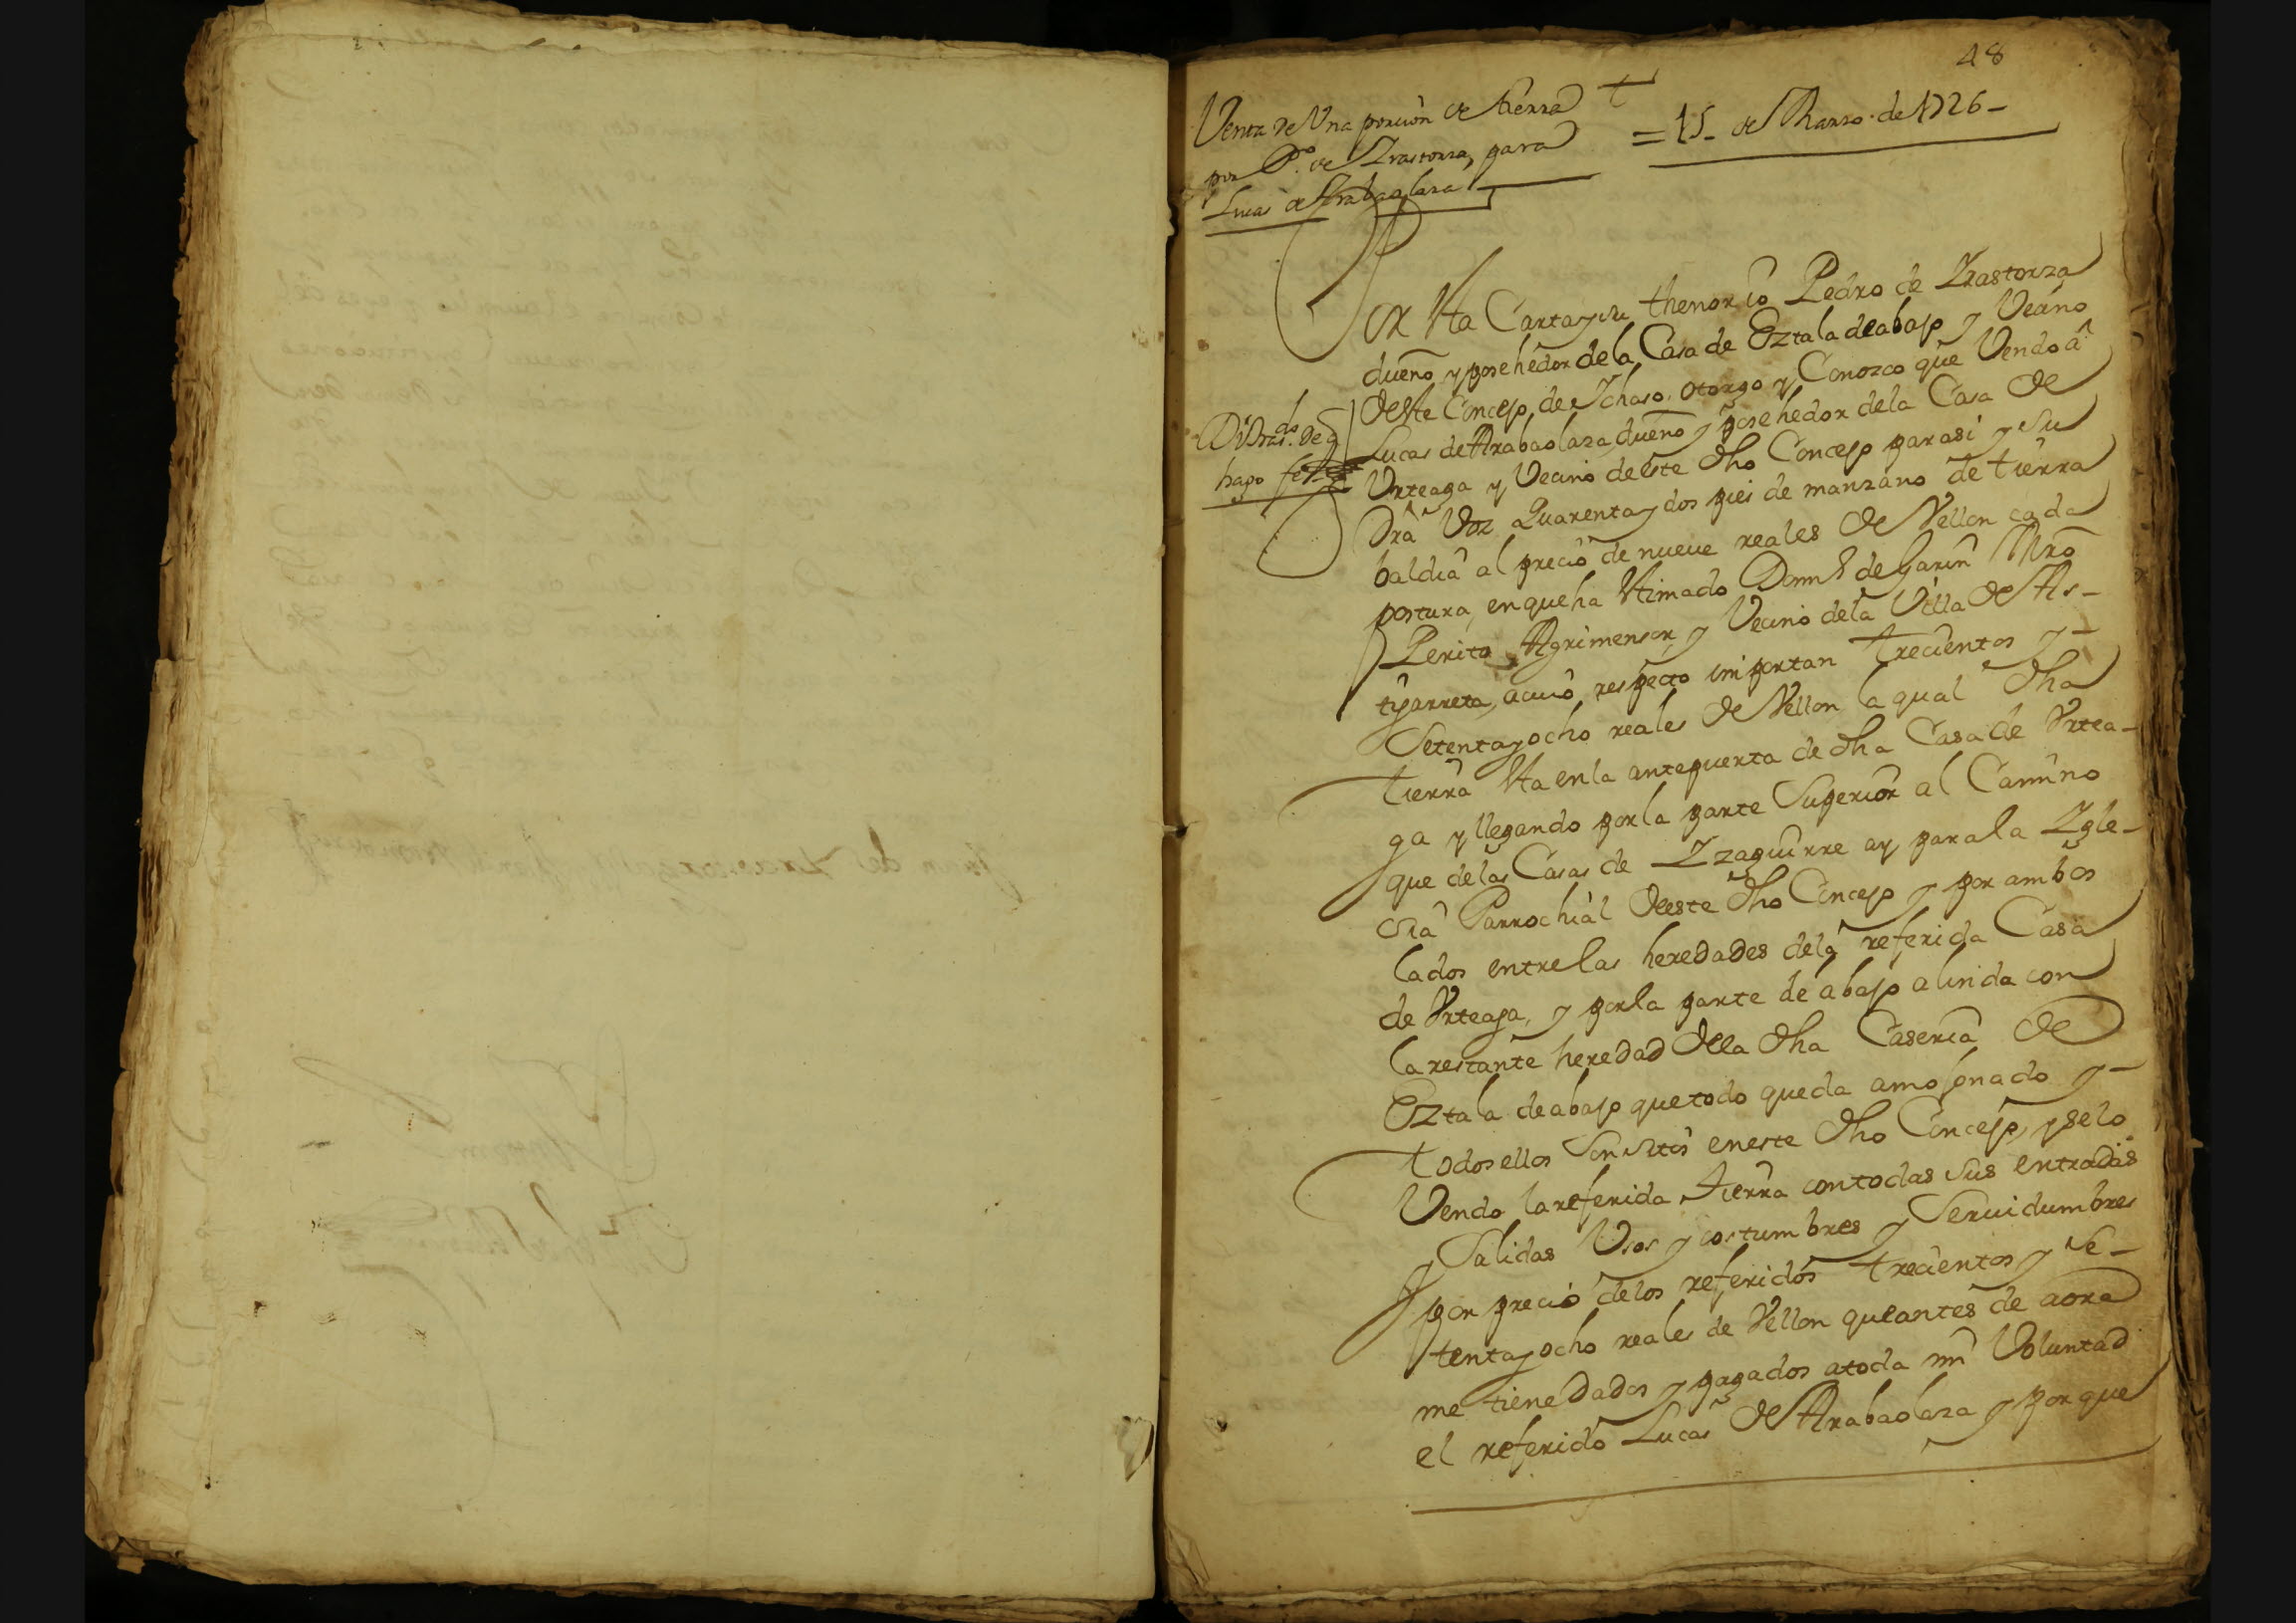 48
Venta de Una porcion de tierra
por P.º de Yrastorza, para
Lucas de Arabaolaza
= 15 - de Marzo de 1726 -
Por Esta Carta y su thenor io Pedro de Yrastorza
dueño y posehedor de la Casa de Eztala de abajo y Vecino
deste Concejo de Ichaso, otorgo y Conozco que Vendo â
Lucas de Arabaolaza dueño y posehedor de la Casa de
Urteaga y Vecino de este dho Concejo para si y su
dra Voz Quarenta y dos pies de manzano de tierra
baldia al precio de nueve reales de Vellon cada
postura, en que ha Estimado Domin.º de Garin Mro
Perito Agrimensor, y Vecino de la Villa de As-
tigarreta, a cuio respecto importan trecientos y-
Setenta y ocho reales de Vellon la qual dha
tierra Esta en la antepuerta de dha Casa de Urtea-
ga y llegando por la parte Superior al Camino
que de las Casas de Yzaguirre ay para la Ygle-
sia Parrochial deeste dho Concejo y por ambos
lados entre las heredades de la referida Casa
de Urteaga, y por la parte de abajo alinida con
la restante heredad della dha Caseria de
Eztala de abajo que todo queda amojonado y-
todos ellos Son sitos en este dho Concejo, y se lo
Vendo la referida tierra con todas sus entradas
y Salidas Usos y costumbres y Servidumbres
por precio de los referidos trecientos y Se-
tenta y ocho reales de Vellon que antes de aora
me tiene dados y pagados a toda mi Voluntad
el referido Lucas de Arabaolaza y por que